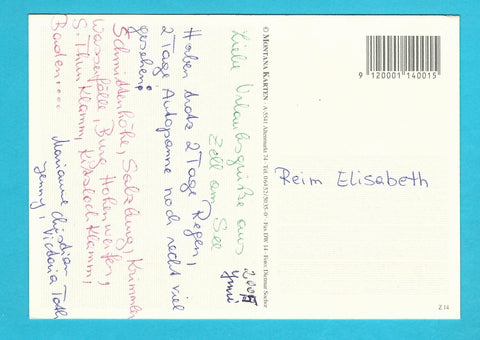 Liebe Urlaubsgrüße aus
Zell am See
2005
Juni
Haben trotz 2 Tage Regen,
2 Tage Autopanne noch recht viel
gesehen:
Schmittenhöhe, Salzburg, Krimmler
Wasserfälle, Burg Hohenwerfen,
S. Thurn Klamm, Kitzlochklamm,
Baden....
Marianne Christian
Jenny, Victoria Toth
© MONTANA KARTEN A 5541 Altenmarkt 74 · Tel. 06452/5035-0 · Fax DW 14 · Foto: Dietmar Sochor
9 120001 140015
Reim Elisabeth
Z 14